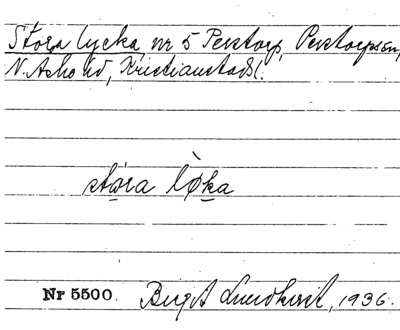 Stora lycka, nr 5 Perstorp, Perstorpssn,
N. Åsbo hd, Kristianstads l.
stora løka
Nr 5500. Birgit Lundkvist, 1936.